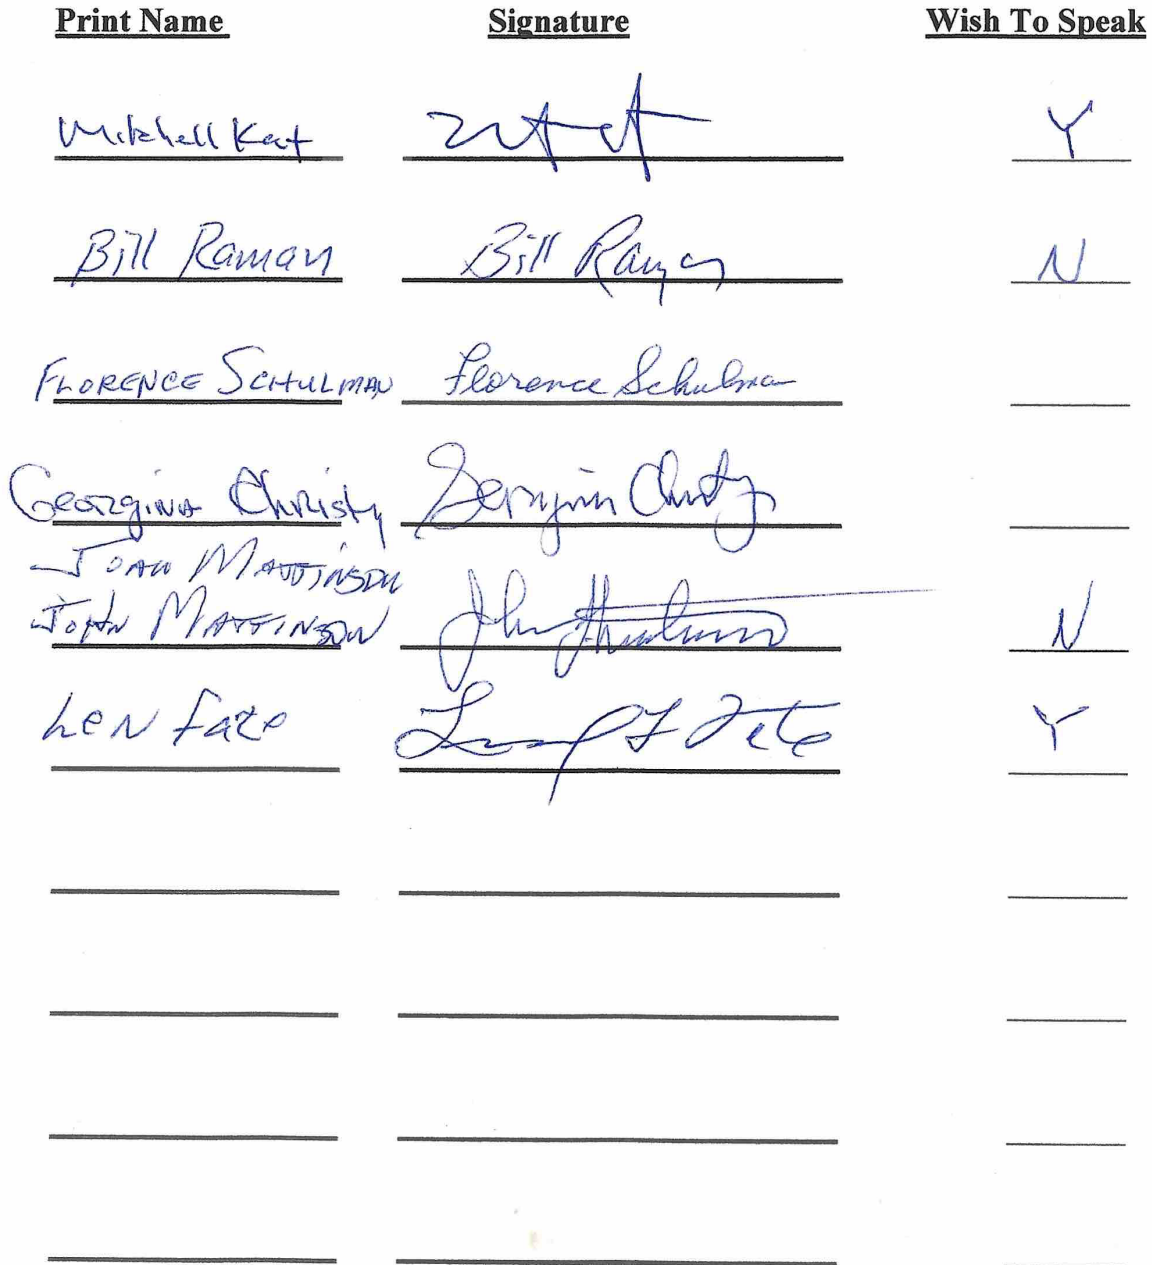 Print Name Signature Wish To Speak
Mitchell Kat Y
Bill Raman Bill Raman N
FLORENCE SCHULMAN Florence Schulman
Georgina Christy
JOAN MATTINSON
JOHN MATTINSON John N
LeN Y